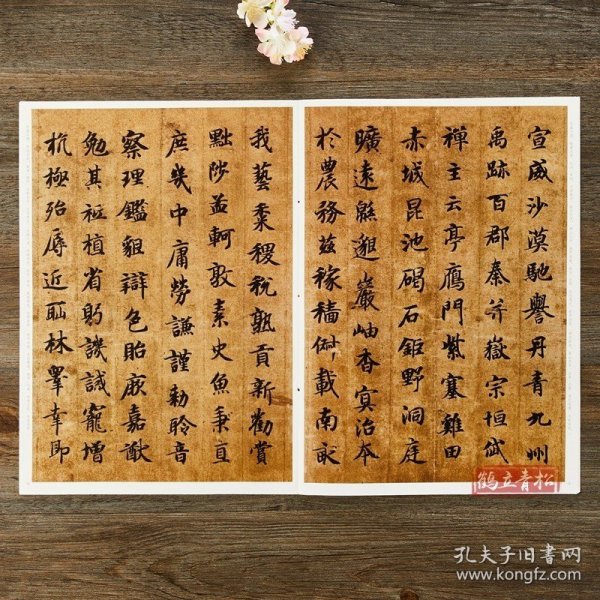 宣威沙漠馳譽丹青九州
禹跡百郡秦并嶽宗恒岱
禪主云亭鴈門紫塞雞田
赤城昆池碣石鉅野洞庭
曠遠緜邈巖岫杳冥治本
於農務茲稼穡俶載南畝
我藝黍稷稅熟貢新勸賞
黜陟孟軻敦素史魚秉直
庶幾中庸勞謙謹勅聆音
察理鑑貌辯色貽厥嘉猷
勉其祗植省躬譏誡寵增
抗極殆辱近耻林睾幸即
鶴立青松
孔夫子旧书网
www.kongfz.com